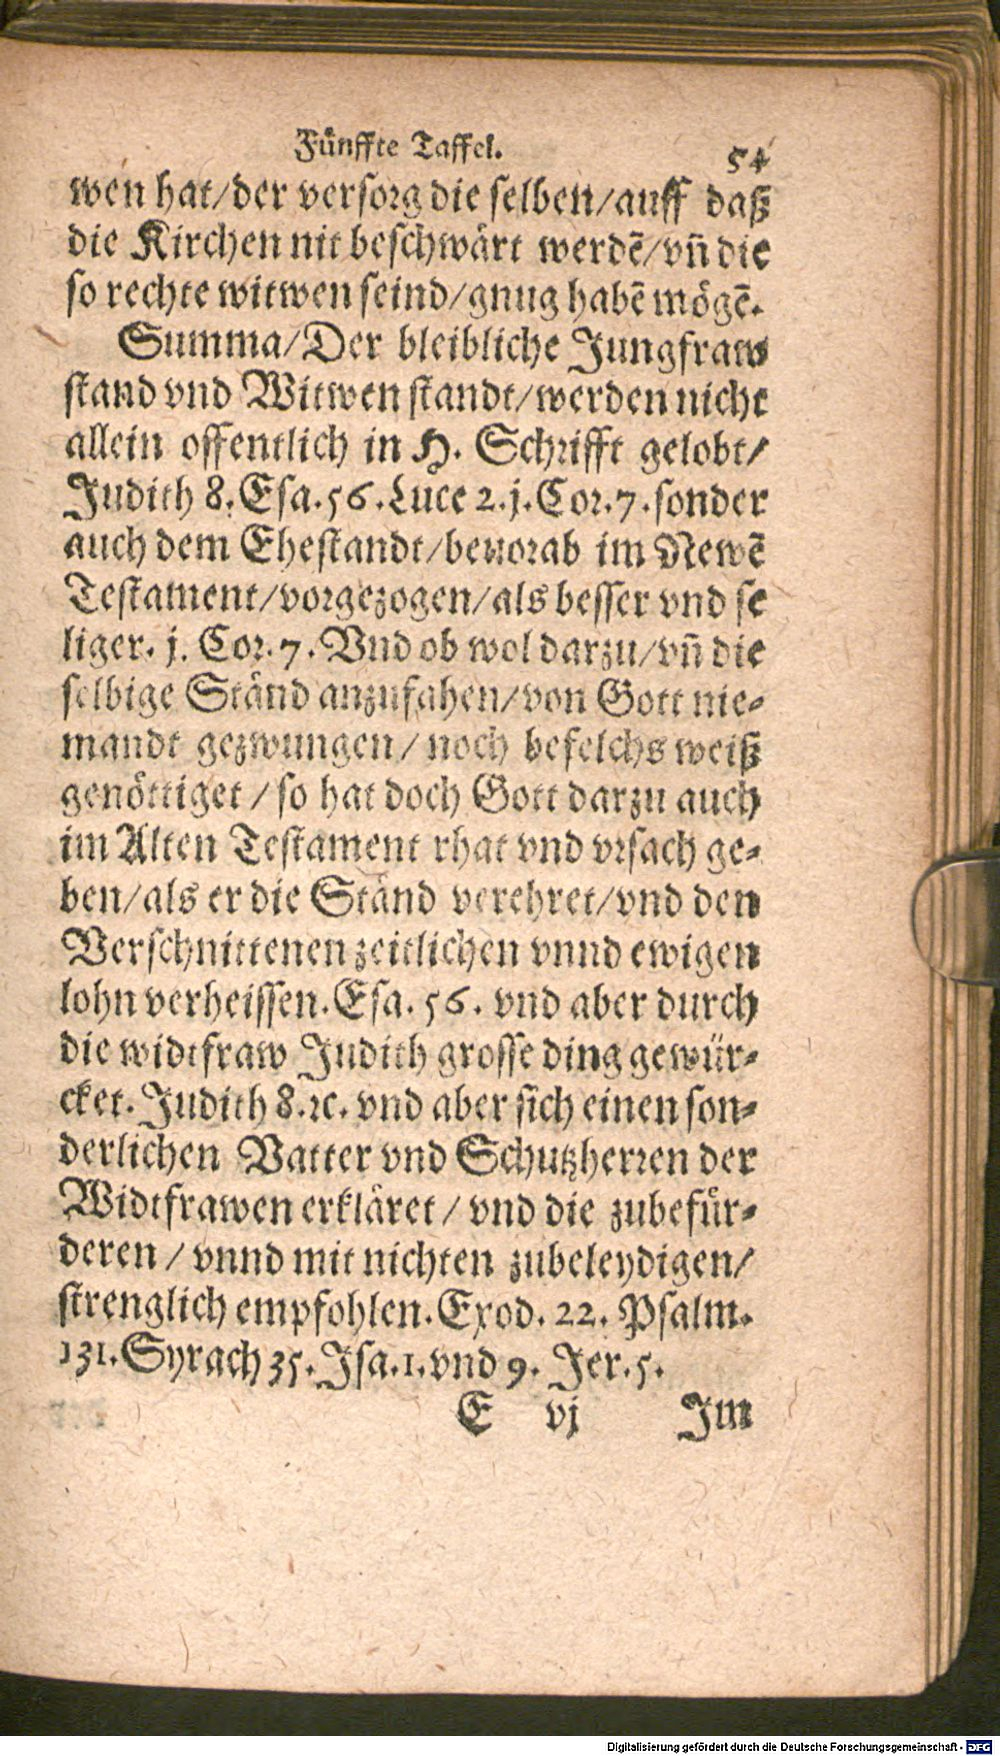 Fünffte Taffel.
54
wen hat/der versorg die selben/auff daß
die Kirchen nit beschwärt werdē/vñ die
so rechte witwen seind/gnug habē mögē.
Summa/Der bleibliche Jungfraw
stand vnd Witwen standt/werden nicht
allein offentlich in H. Schrifft gelobt/
Judith 8. Esa. 56. Luce 2. j. Cor. 7. sonder
auch dem Ehestandt/beuorab im Newē
Testament/vorgezogen/als besser vnd se
liger. j. Cor. 7. Vnd ob wol darzu/vñ die
selbige Ständ anzufahen/von Gott nie-
mandt gezwungen/noch befelchs weiß
genöttiget/so hat doch Gott darzu auch
im Alten Testament rhat vnd vrsach ge-
ben/als er die Ständ verehret/vnd den
Verschnittenen zeitlichen vnnd ewigen
lohn verheissen. Esa. 56. vnd aber durch
die widtfraw Judith grosse ding gewür-
cket. Judith 8. ꝛc. vnd aber sich einen son-
derlichen Vatter vnd Schutzherren der
Widtfrawen erkläret/vnd die zubefür-
deren/vnnd mit nichten zubeleydigen/
strenglich empfohlen. Exod. 22. Psalm.
131. Syrach 35. Isa. 1. vnd 9. Jer. 5.
E vj Im
Digitalisierung gefördert durch die Deutsche Forschungsgemeinschaft - DFG